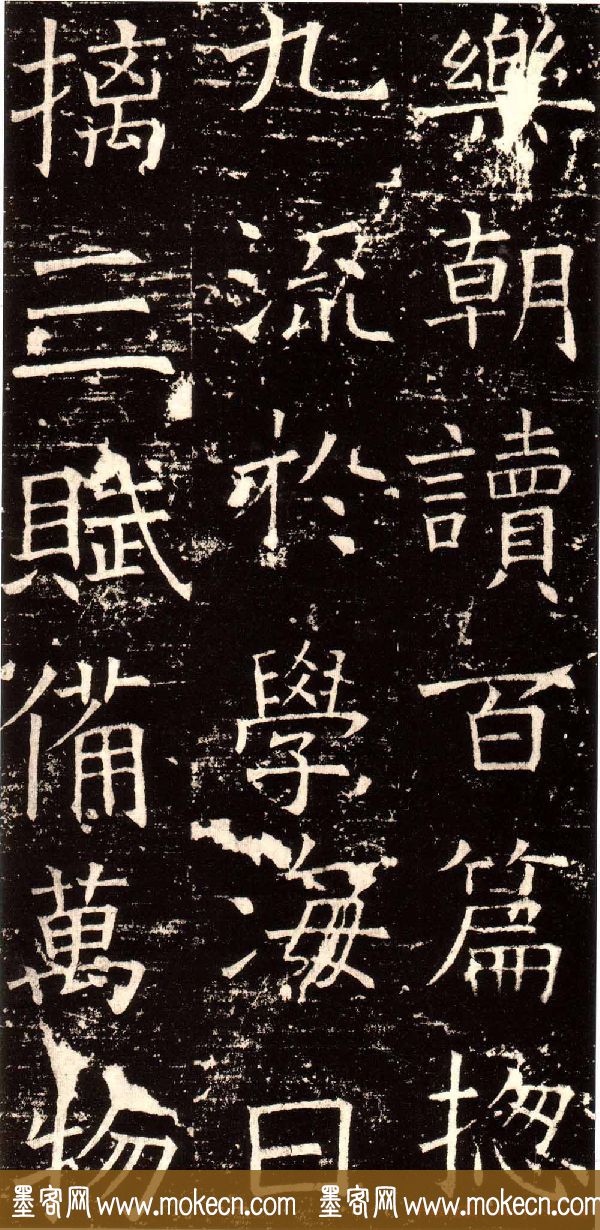 樂朝讀百篇揔
九流於學海日
摛三賦備萬物
墨客网 www.mokecn.com 墨客网 www.mokecn.com